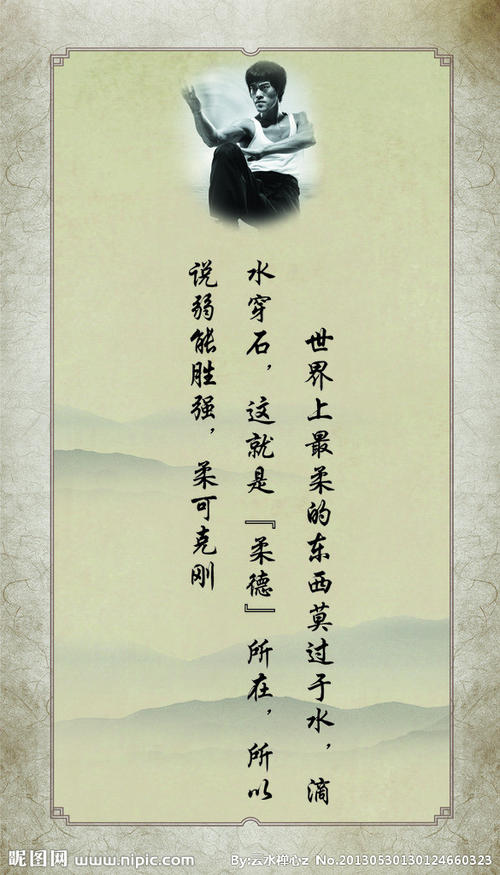 世界上最柔的东西莫过于水，滴
水穿石，这就是『柔德』所在，所以
说弱能胜强，柔可克刚
昵图网 www.nipic.com
By:云水禅心z No.20130530130124660323